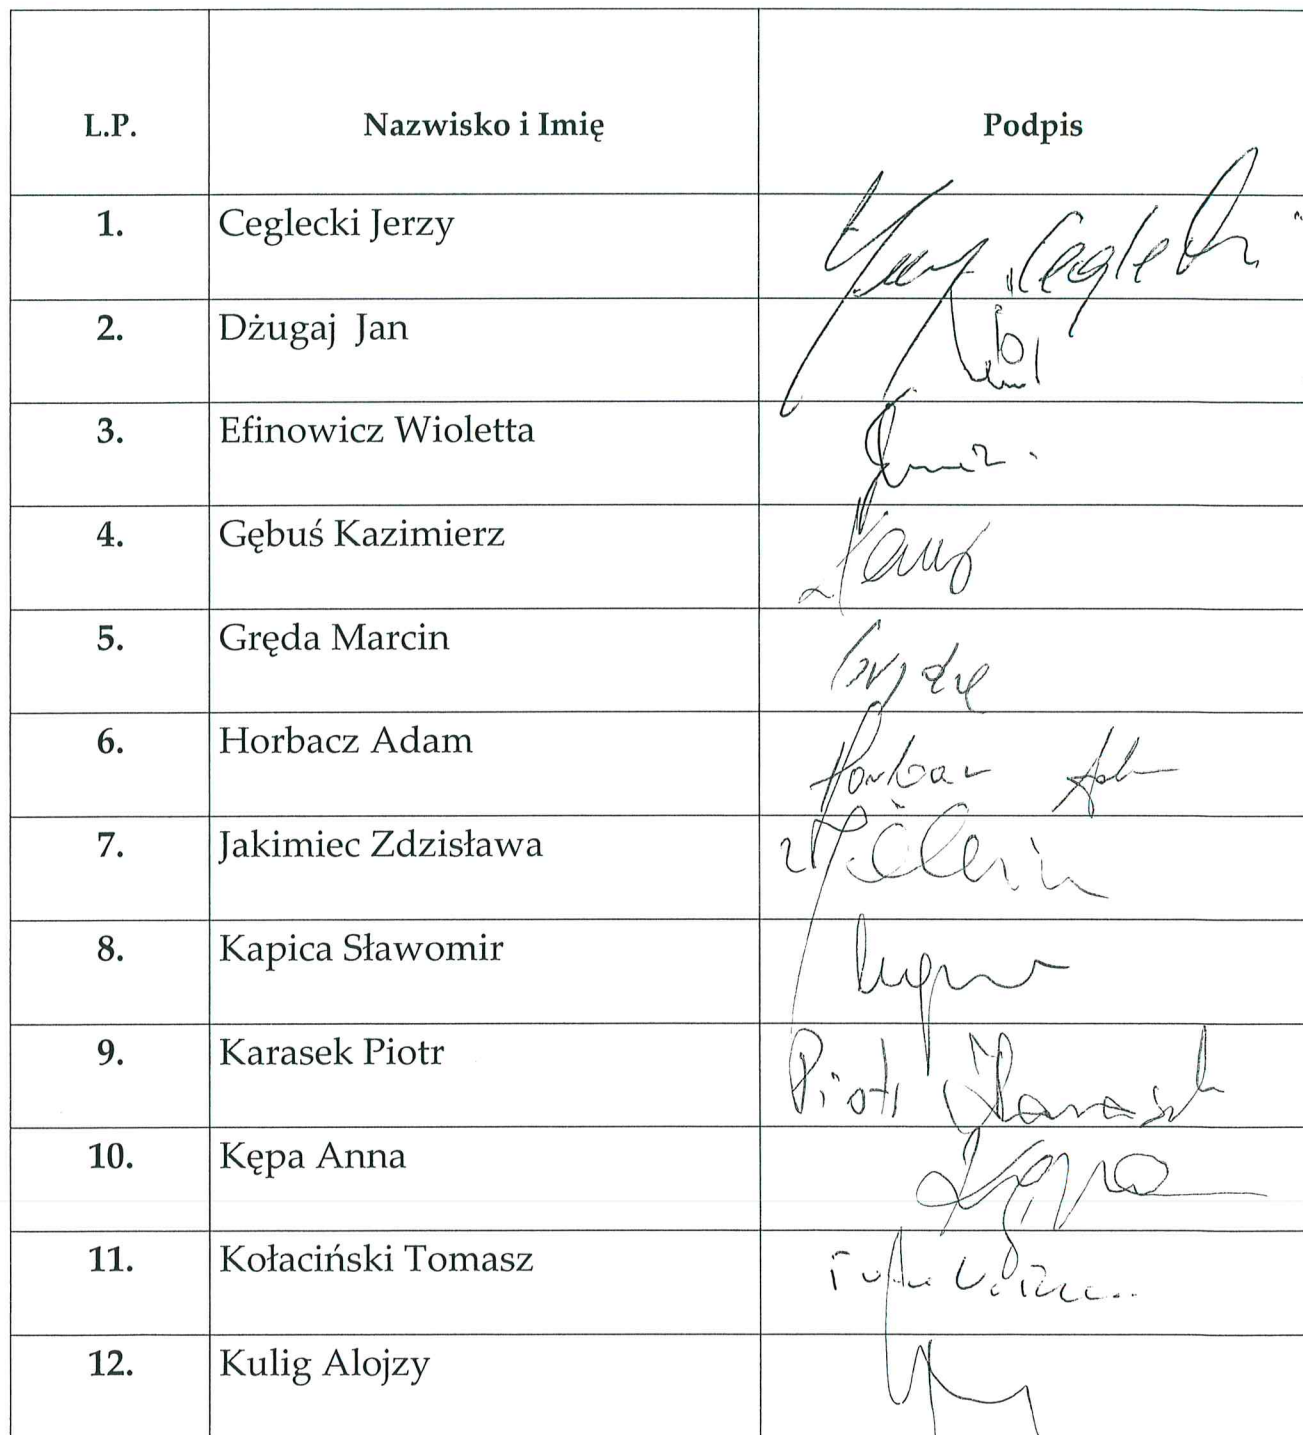 L.P. Nazwisko i Imię Podpis
1. Ceglecki Jerzy Jerzy Ceglecki
2. Dżugaj Jan
3. Efinowicz Wioletta
4. Gębuś Kazimierz
5. Gręda Marcin
6. Horbacz Adam
7. Jakimiec Zdzisława
8. Kapica Sławomir
9. Karasek Piotr Piotr Karasek
10. Kępa Anna Kępa
11. Kołaciński Tomasz
12. Kulig Alojzy